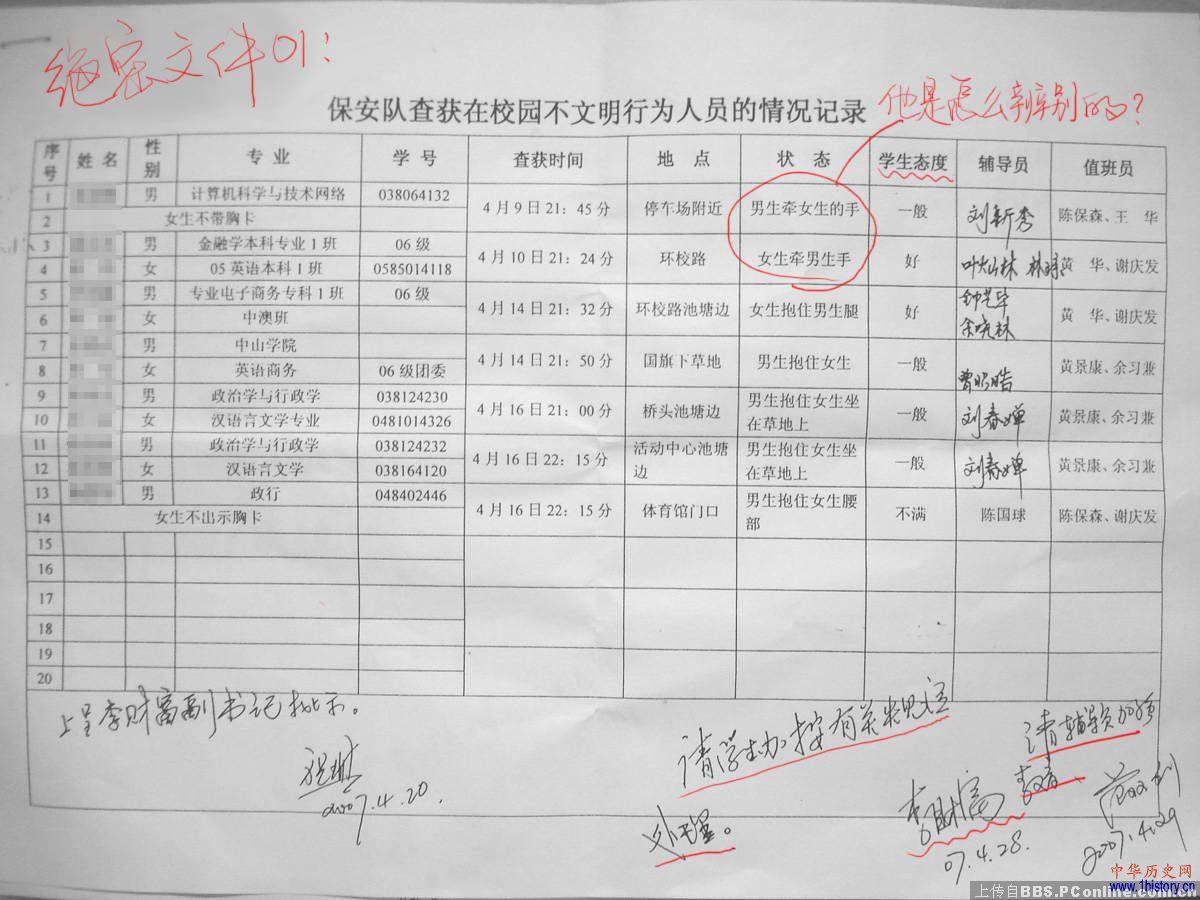 绝密文件01:
保安队查获在校园不文明行为人员的情况记录
他是怎么辨别的?
序号 姓名 性别 专业 学号 查获时间 地点 状态 学生态度 辅导员 值班员
1 男 计算机科学与技术网络 038064132 4月9日21:45分 停车场附近 男生牵女生的手 一般 刘新秀 陈保森、王 华
2 女生不带胸卡
3 男 金融学本科专业1班 06级 4月10日21:24分 环校路 女生牵男生手 好 叶灿林 黄 华、谢庆发
4 女 05英语本科1班 0585014118
5 男 专业电子商务专科1班 06级 4月14日21:32分 环校路池塘边 女生抱住男生腿 好 黄 华、谢庆发
6 女 中澳班
7 男 中山学院 4月14日21:50分 国旗下草地 男生抱住女生 一般 黄景康、余习兼
8 女 英语商务 06级团委
9 男 政治学与行政学 038124230 4月16日21:00分 桥头池塘边 男生抱住女生坐在草地上 一般 刘春婵 黄景康、余习兼
10 女 汉语言文学专业 0481014326
11 男 政治学与行政学 038124232 4月16日22:15分 活动中心池塘边 男生抱住女生坐在草地上 一般 刘春婵 黄景康、余习兼
12 女 汉语言文学 038164120
13 男 政行 048402446 4月16日22:15分 体育馆门口 男生抱住女生腰部 不满 陈国球 陈保森、谢庆发
14 女生不出示胸卡
15
16
17
18
19
20
上呈李财富副书记批示。
2007.4.20.
请学生办按有关规定
处理。
李财富
07.4.28.
请辅导员
2007.4.29
中华历史网
www.1history.cn
上传自BBS.PConline.com.cn